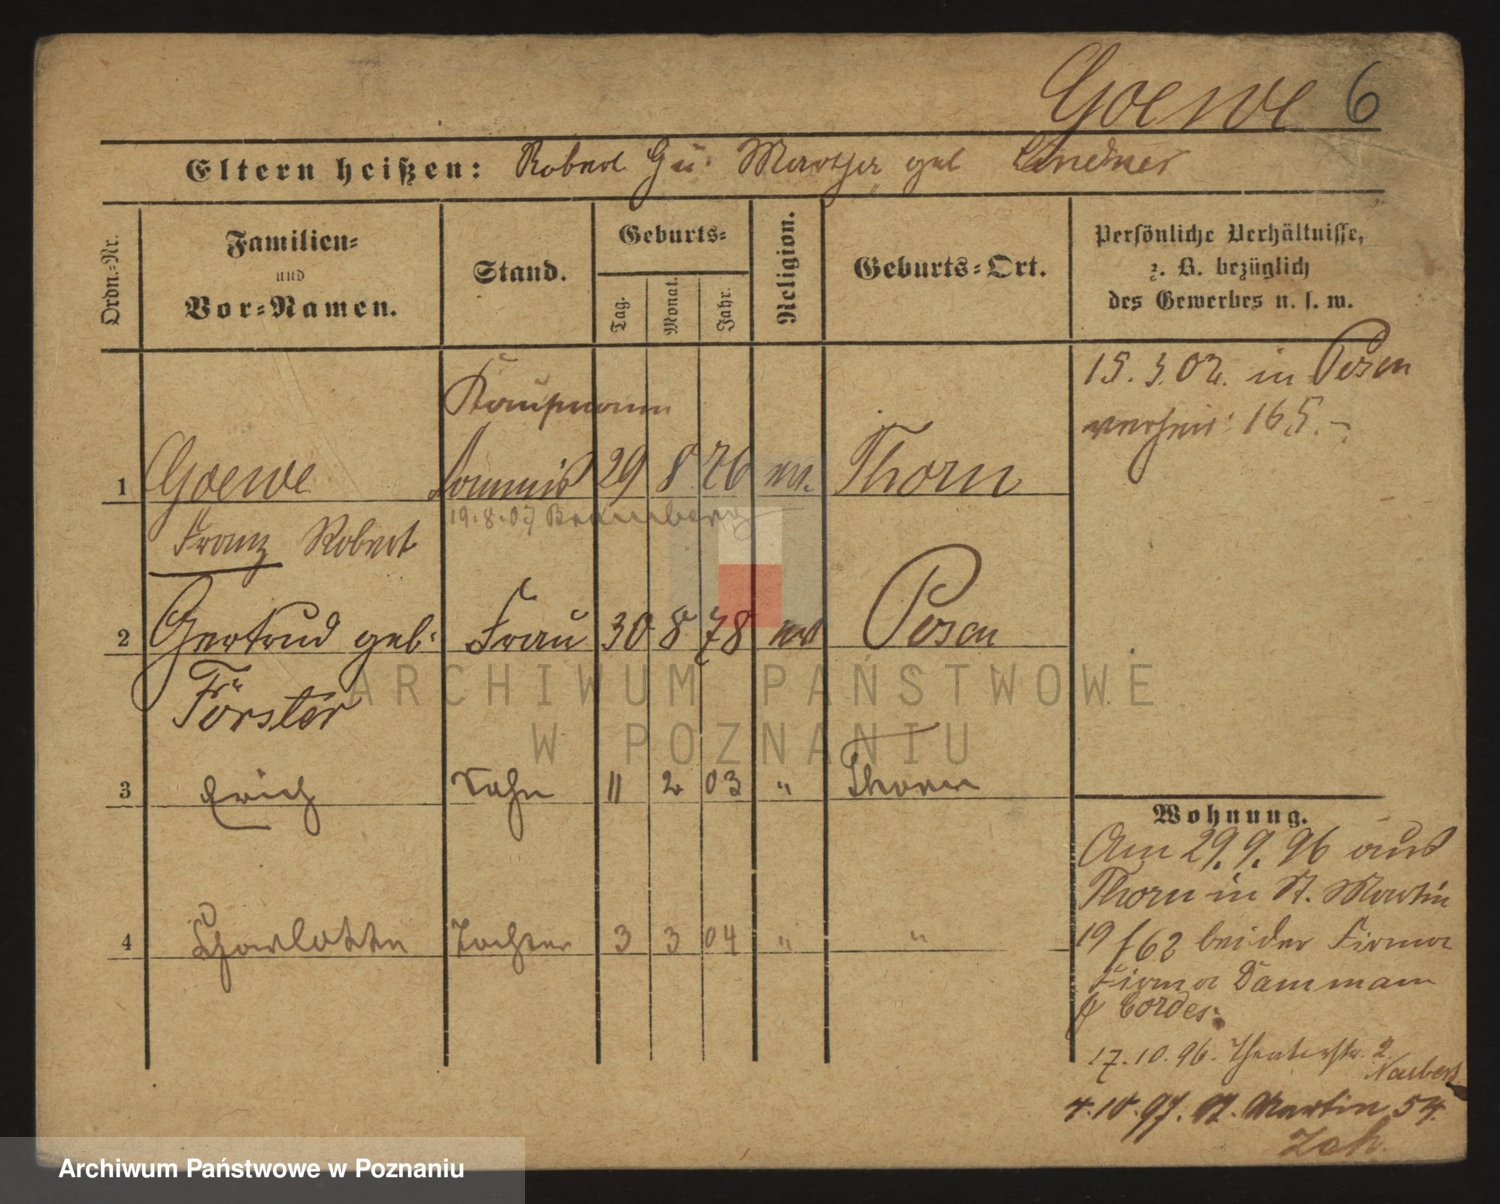 Goewe 6
Eltern heißen: Robert G u. Martha geb Lindner
Ordn.-Nr.
Familien-
und
Vor-Namen.
Stand.
Geburts-
Tag.
Monat.
Jahr.
Religion.
Geburts-Ort.
Persönliche Verhältnisse,
z. B. bezüglich
des Gewerbes u. s. w.
Kaufmann
1 Goewe Commis 29 8 76 ev. Thorn
19.8.07 Bromberg
Franz Robert
2 Gertrud geb. Frau 30 8 78 ev Posen
Förster
3 Erich Sohn 11 2 03 " Thorn
4 Charlotte Tochter 3 3 04 " "
15.3.02. in Posen
verheir. 165.-
Wohnung.
Am 29.9.96 aus
Thorn in St. Martin
19 f62 bei der Firma
Firma Dammann
& Cordes.
17.10.96. Theaterstr. 2
4.10.97. St. Martin 54.
ARCHIWUM PAŃSTWOWE
W POZNANIU
Archiwum Państwowe w Poznaniu